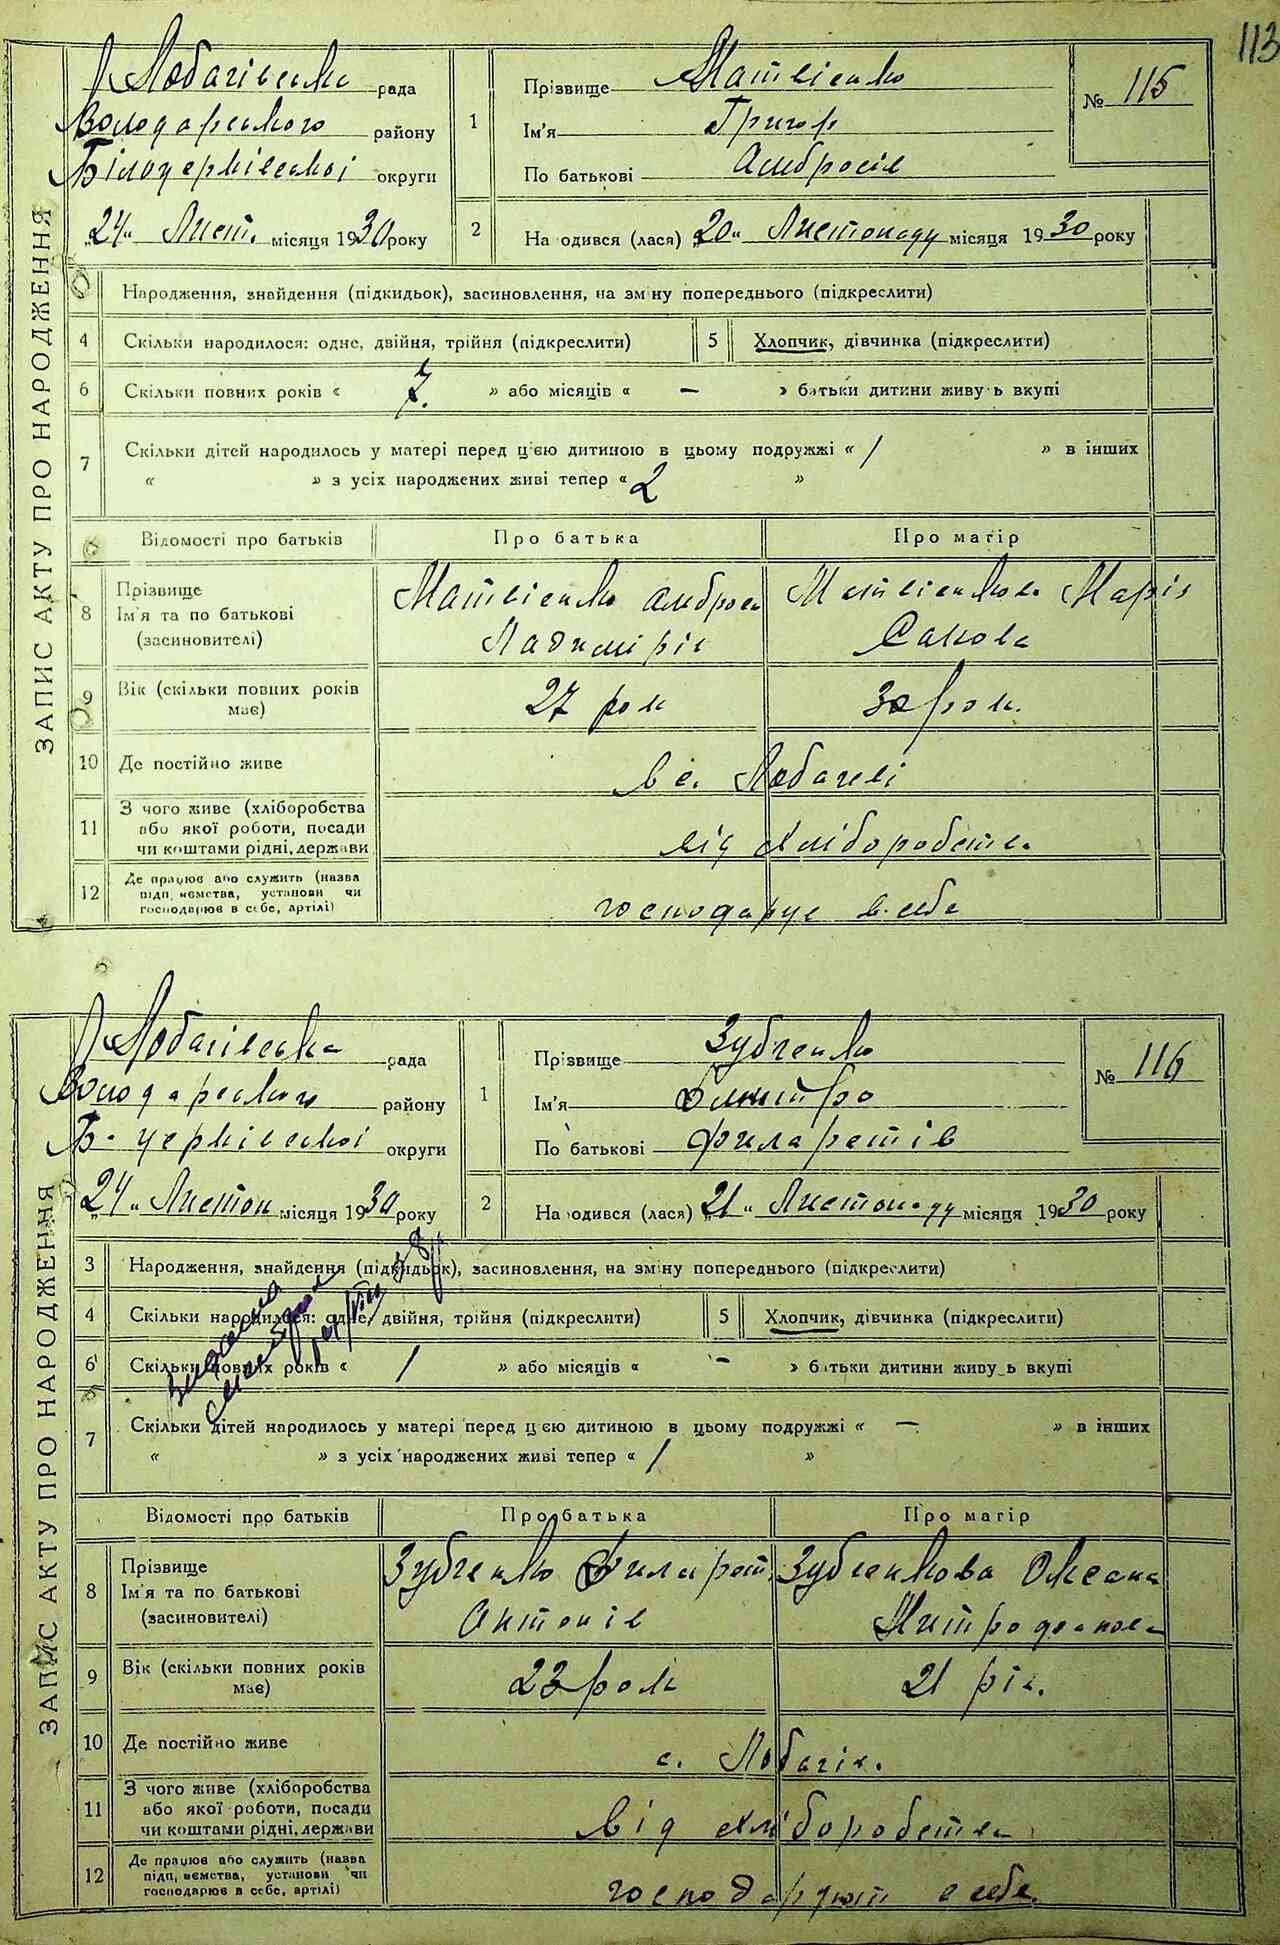 113
Лобачівська рада
Володарського району
Білоцерківської округи
„24“ Лист. місяця 1930 року
1
Прізвище Матвієнко
Ім'я Григор
По батькові Амбросів
№ 115
2
На одився (лася) „20“ Листопаду місяця 1930 року
ЗАПИС АКТУ ПРО НАРОДЖЕННЯ
Народження, знайдення (підкидьок), засиновлення, на зміну попереднього (підкреслити)
4 Скільки народилося: одне, двійня, трійня (підкреслити)
5 Хлопчик, дівчинка (підкреслити)
6 Скільки повних років « 7. » або місяців « — » батьки дитини живу ь вкупі
7 Скільки дітей народилось у матері перед цією дитиною в цьому подружжі « 1 » в інших
« » з усіх народжених живі тепер « 2 »
Відомості про батьків Про батька Про матір
8 Прізвище
Ім'я та по батькові
(засиновителі)
Матвієнко Амброс
Ладимірів
Матвієнкова Марія
Савова
9 Вік (скільки повних років має)
27 рок
30 рок.
10 Де постійно живе
в с. Лобачеві
11 З чого живе (хліборобства
або якої роботи, посади
чи коштами рідні, держави
від хліборобства
12 Де працює або служить (назва
підп, иємства, установи чи
господарює в себе, артілі)
господарує в себе
Лобачівська рада
Володарського району
Б-церківської округи
„24“ Листоп місяця 1930 року
1
Прізвище Зубченко
Ім'я Дмитро
По батькові Филаретів
№ 116
2
На одився (лася) „21“ Листопаду місяця 1930 року
ЗАПИС АКТУ ПРО НАРОДЖЕННЯ
3 Народження, знайдення (підкидьок), засиновлення, на зміну попереднього (підкреслити)
4 Скільки народилося: одне, двійня, трійня (підкреслити)
5 Хлопчик, дівчинка (підкреслити)
6 Скільки повних років « 1 » або місяців « — » батьки дитини живу ь вкупі
7 Скільки дітей народилось у матері перед цією дитиною в цьому подружжі « — » в інших
« » з усіх народжених живі тепер « 1 »
Відомості про батьків Про батька Про матір
8 Прізвище
Ім'я та по батькові
(засиновителі)
Зубченко Филарет
Антонів
Зубченкова Оксана
Митрофанова
9 Вік (скільки повних років має)
23 рок
21 рік.
10 Де постійно живе
с. Лобачів.
11 З чого живе (хліборобства
або якої роботи, посади
чи коштами рідні, держави
від хліборобства
12 Де працює або служить (назва
підп, иємства, установи чи
господарює в себе, артілі)
господарюють в себе.